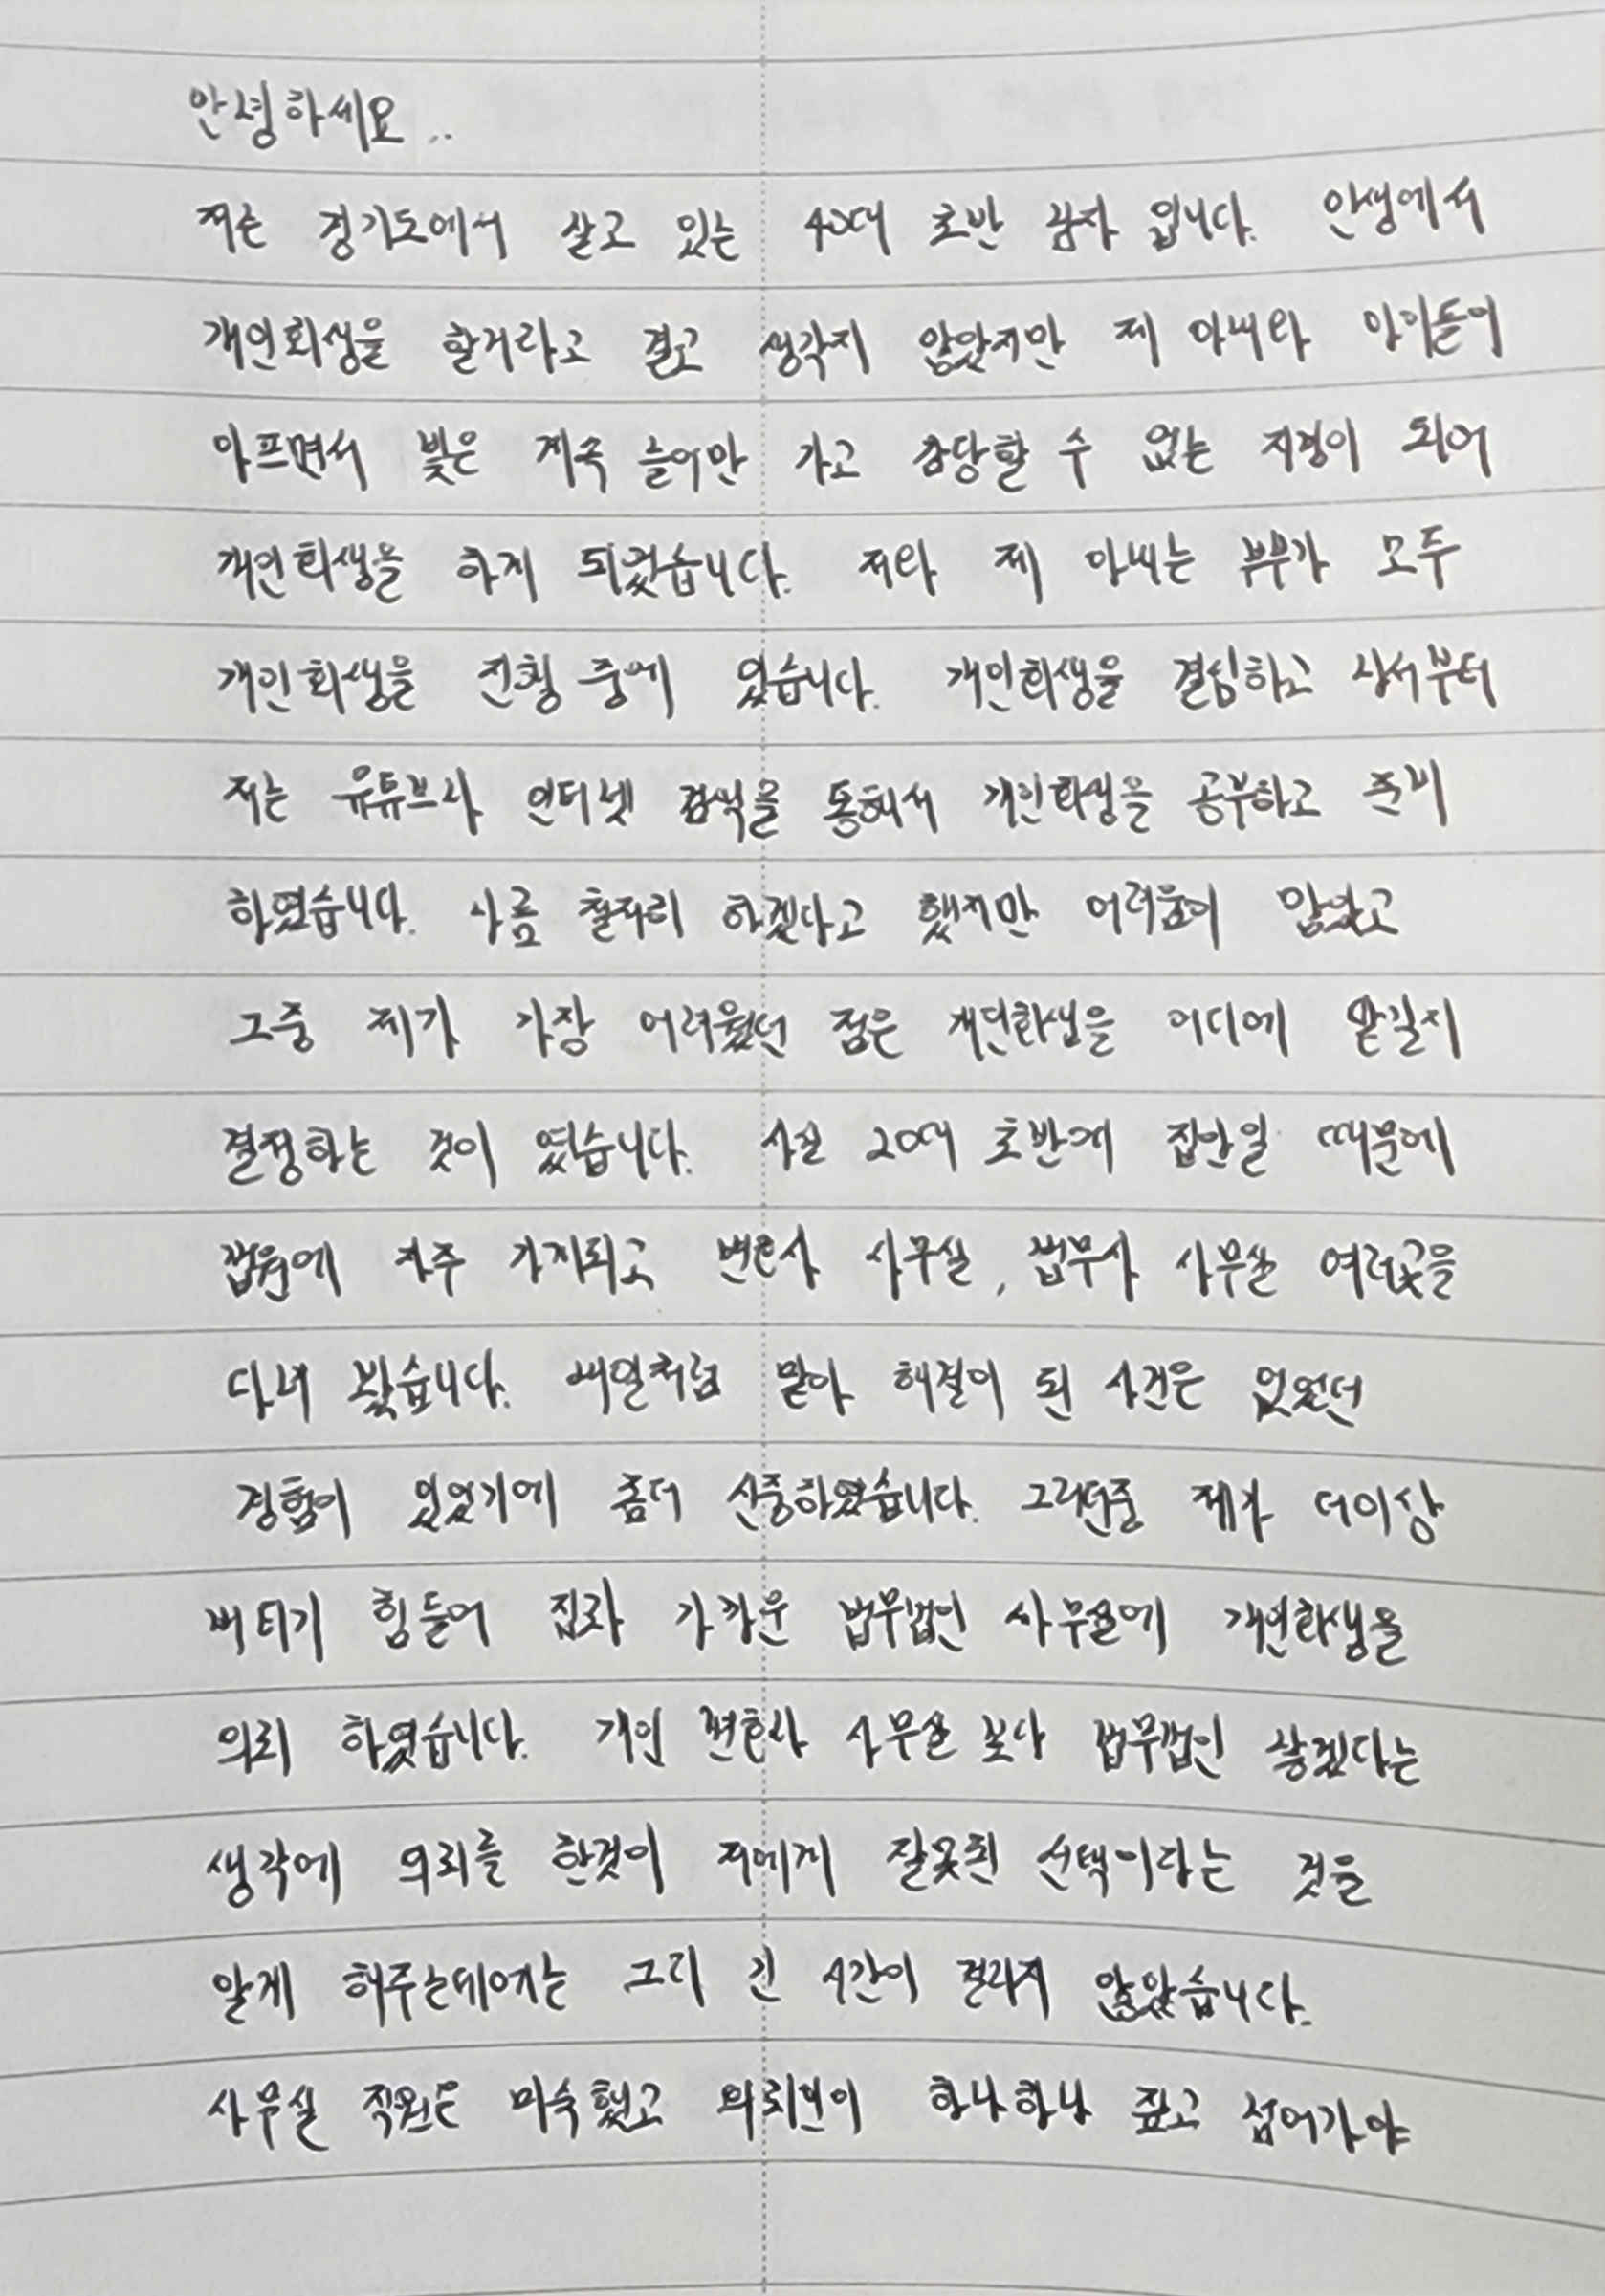 안녕하세요..
저는 경기도에서 살고 있는 40대 초반 남자 입니다. 인생에서
개인회생을 할거라고 결코 생각지 않았지만 제 아내와 아이들이
아프면서 빚은 계속 늘어만 가고 감당할 수 없는 지경이 되어
개인회생을 하게 되었습니다. 저와 제 아내는 부부가 모두
개인회생을 진행 중에 있습니다. 개인회생을 결심하고 나서부터
저는 유튜브나 인터넷 검색을 통해서 개인회생을 공부하고 준비
하였습니다. 나름 철저히 하겠다고 했지만 어려움이 많았고
그중 제가 가장 어려웠던 점은 개인회생을 어디에 맡길지
결정하는 것이 였습니다. 사실 20대 초반에 집안일 때문에
법원에 자주 가게되고 변호사 사무실, 법무사 사무실 여러곳을
다녀 봤습니다. 내일처럼 맡아 해결이 된 사건은 없었던
경험이 있었기에 좀더 신중하였습니다. 그러던중 제가 더이상
버티기 힘들어 집과 가까운 법무법인 사무실에 개인회생을
의뢰 하였습니다. 개인 변호사 사무실 보다 법무법인 좋겠다는
생각에 의뢰를 한것이 저에게 잘못된 선택이라는 것을
알게 해주는데에는 그리 긴 시간이 걸리지 않았습니다.
사무실 직원은 미숙했고 의뢰인이 하나하나 짚고 넘어가야